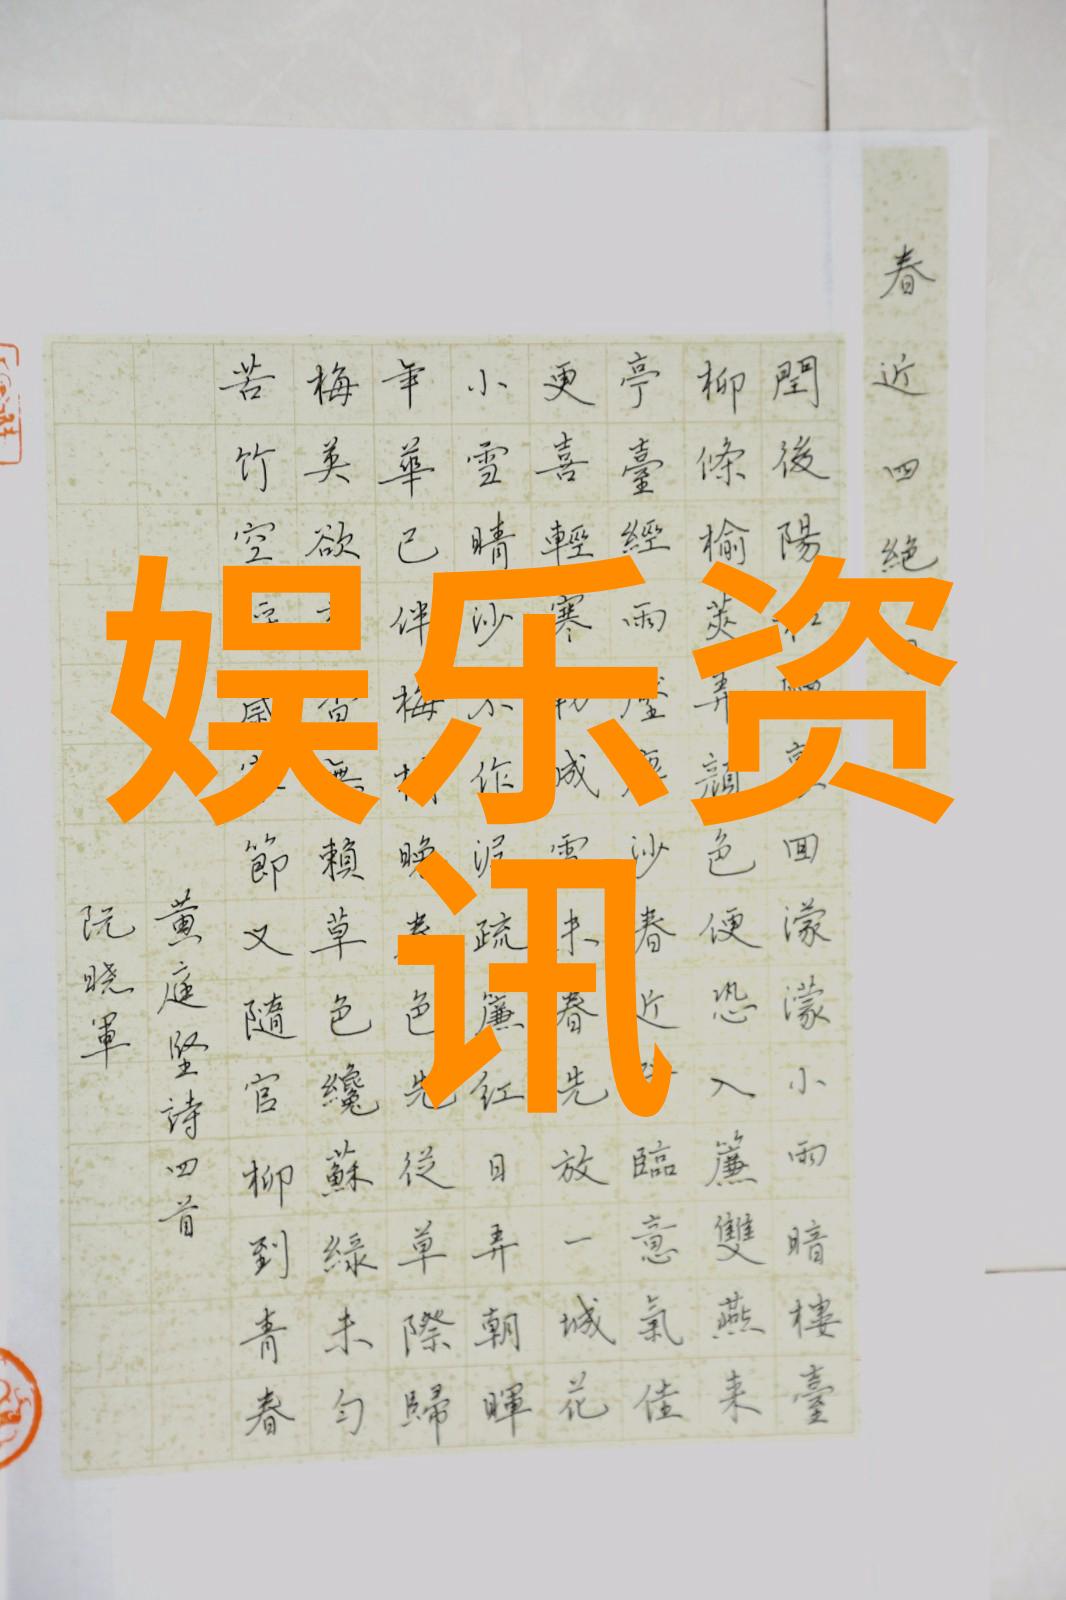 春近四絕
閏後陽 回濛濛小雨暗樓臺
柳條榆莢弄顏色便恐入簾雙燕來
亭臺經雨壓 沙春近 臨意氣佳
更喜輕寒 成雪未春先放一城花
小雪晴沙不作泥疏簾紅日弄朝暉
年華已伴梅 晚春色先從草際歸
梅英欲 無賴草色纔蘇綠未勻
苦竹空 節又隨官柳到青春
黄庭坚詩四首
阮晓軍
娱乐资
讯